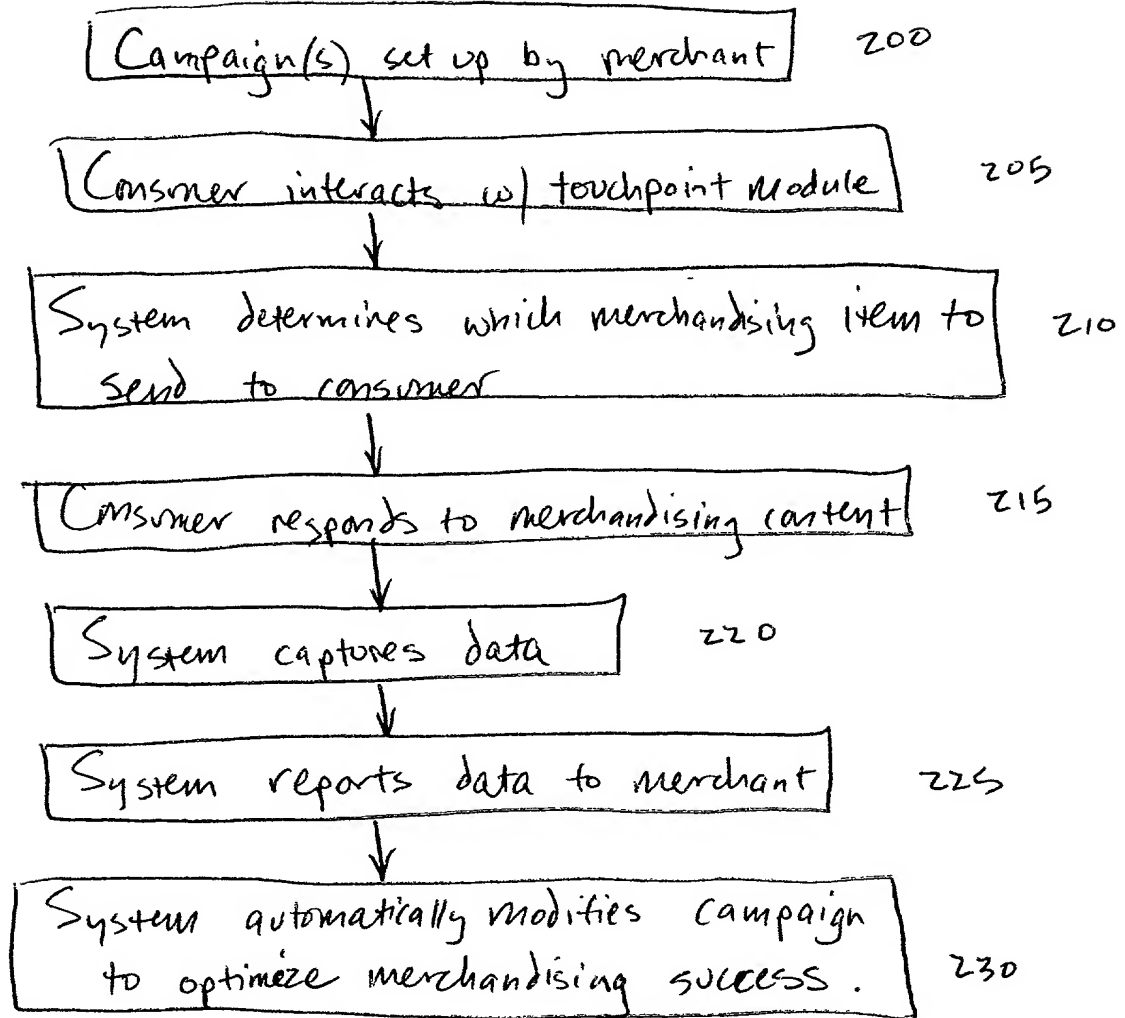 Campaign(s) set up by merchant 200
Consumer interacts w/ touchpoint module 205
System determines which merchandising item to 210
send to consumer
Consumer responds to merchandising content 215
System captures data 220
System reports data to merchant 225
System automatically modifies campaign
to optimize merchandising success. 230